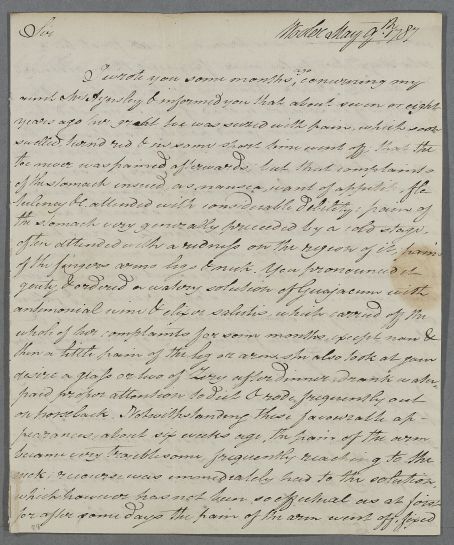 Sir Wooler May 9th. 1787
I wrote you some months ago, concerning my
aunt Mrs Aynsley & informed you that about seven or eight
years ago her great toe was seized with pain, which soon
swelled turnd red & in some short time went off; that the
toe never was pained afterwards; but that complaints
of the stomach ensued, as nausea, want of appetite, fla
tulency &c attended with considerable debility; pains of
the stomach very generally preceded by a cold stage,
often attended with a redness on the region of it, pains
of the fingers arms legs & neck. You pronounced it
gouty, & ordered a watery solution of Guajacum with
antimonial wine & elixir salutis, which carried off the
whole of her complaints for som months, except now &
then a little pain of the leg or arm, she also took at your
desire a glass or two of after dinner, drank water,
paid proper attention to diet & rode frequently out
on horsback. Notwithstanding these favourable ap-
pearances, about six weeks ago, the pain of the arm
became very troublesome, frequently reaching to the
neck; recourse was immediately had to the solution,
which however has not been so effectual as at first
for after some days the pain of the arm went off, fixed